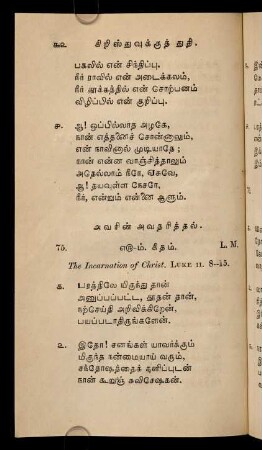 ௬௨ கிறிஸ்துவுக்குத் துதி.
பகலில் என் சிந்திப்பு,
நீர் ராவில் என் அடைக்கலம்,
நீர் தூக்கத்தில் என் சொற்பனம்
விழிப்பில் என் குறிப்பு.
௩. ஆ! ஒப்பில்லாத அழகே,
நான் எத்தனைச் சொன்னாலும்,
என் நாவினால் முடியாதே;
நான் என்ன வாஞ்சித்தாலும்
அதெல்லாம் நீரே, ஏசுவே,
ஆ! தயவுள்ள நேசரே,
நீர், என்றும் என்னை ஆளும்.
அவரின் அவதரித்தல்.
75. எரு-ம். கீதம். L. M.
The Incarnation of Christ. LUKE II. 8–15.
௧. பரத்திலே யிருந்து தான்
அனுப்பப்பட்ட, தூதன் நான்,
நற்செய்தி அறிவிக்கிறேன்,
பயப்படாதிருங்களேன்.
௨. இதோ! சனங்கள் யாவர்க்கும்
மிகுந்த நன்மையாய் வரும்,
சந்தோஷத்தைக் கனிப்புடன்
நான் கூறுஞ் சுவிசேஷகன்.